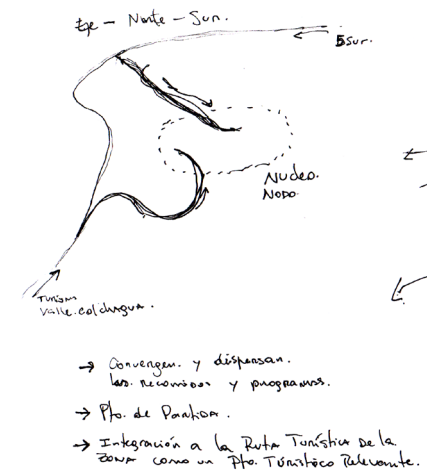 Eje - Norte - Sur.
5 Sur.
Nucleo.
Nodo.
Turismo
Valle. Colchagua.
→ Convergen. y dispersan.
los. recorridos y programas.
→ Pto. de Partida.
→ Integración a la Ruta Turística de la
zona como un Pto. Túristico Relevante.